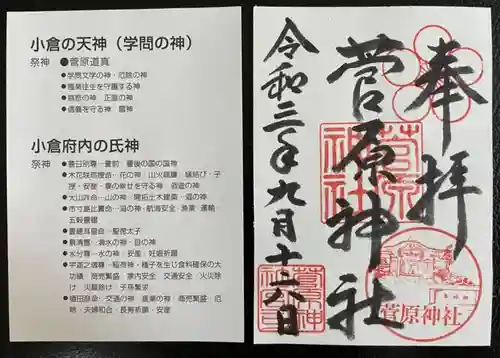 小倉の天神（学問の神）
祭神　●菅原道真
●学問文学の神・厄除の神
●慈悲の神　正直の神
小倉府内の氏神
祭神
●豊日別尊…豊前　豊後の国の国神
●木花咲耶姫命…花の神　山火鎮護　縁結び・子
授・安産・妻の幸せを守る神　酒造の神
●大山祇命…山の神　開拓土木建築・酒の神
●市寸島比賣命…海の神・航海安全・漁業　運輸・
五穀豊穣
●豊聡耳皇命…聖徳太子
●水分尊…水の神・安産　妊娠祈願
●宇迦之魂尊…稲荷神・種子を生じ食料確保の大
功績　商売繁盛　家内安全　交通安全　火災除
け　火難除け　子孫繁栄
●猿田彦命…交通の神　産業の神　商売繁盛　厄
除・夫婦和合・長寿祈願・安産
奉拝
菅原神社
令和三年九月十六日
菅原神社
菅原神社
菅原神社